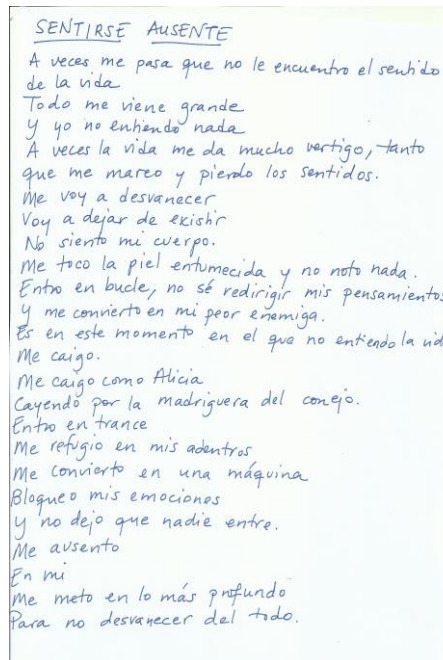 SENTIRSE AUSENTE
A veces me pasa que no le encuentro el sentido
de la vida
Todo me viene grande
Y yo no entiendo nada
A veces la vida me da mucho vertigo, tanto
que me mareo y pierdo los sentidos.
Me voy a desvanecer
Voy a dejar de existir
No siento mi cuerpo.
Me toco la piel entumecida y no noto nada.
Entro en bucle, no sé redirigir mis pensamientos
Y me convierto en mi peor enemiga.
Es en este momento en el que no entiendo la vid
Me caigo.
Me caigo como Alicia
Cayendo por la madriguera del conejo.
Entro en trance
Me refugio en mis adentros
Me convierto en una máquina
Bloqueo mis emociones
y no dejo que nadie entre.
Me ausento
En mi
Me meto en lo más profundo
Para no desvanecer del todo.